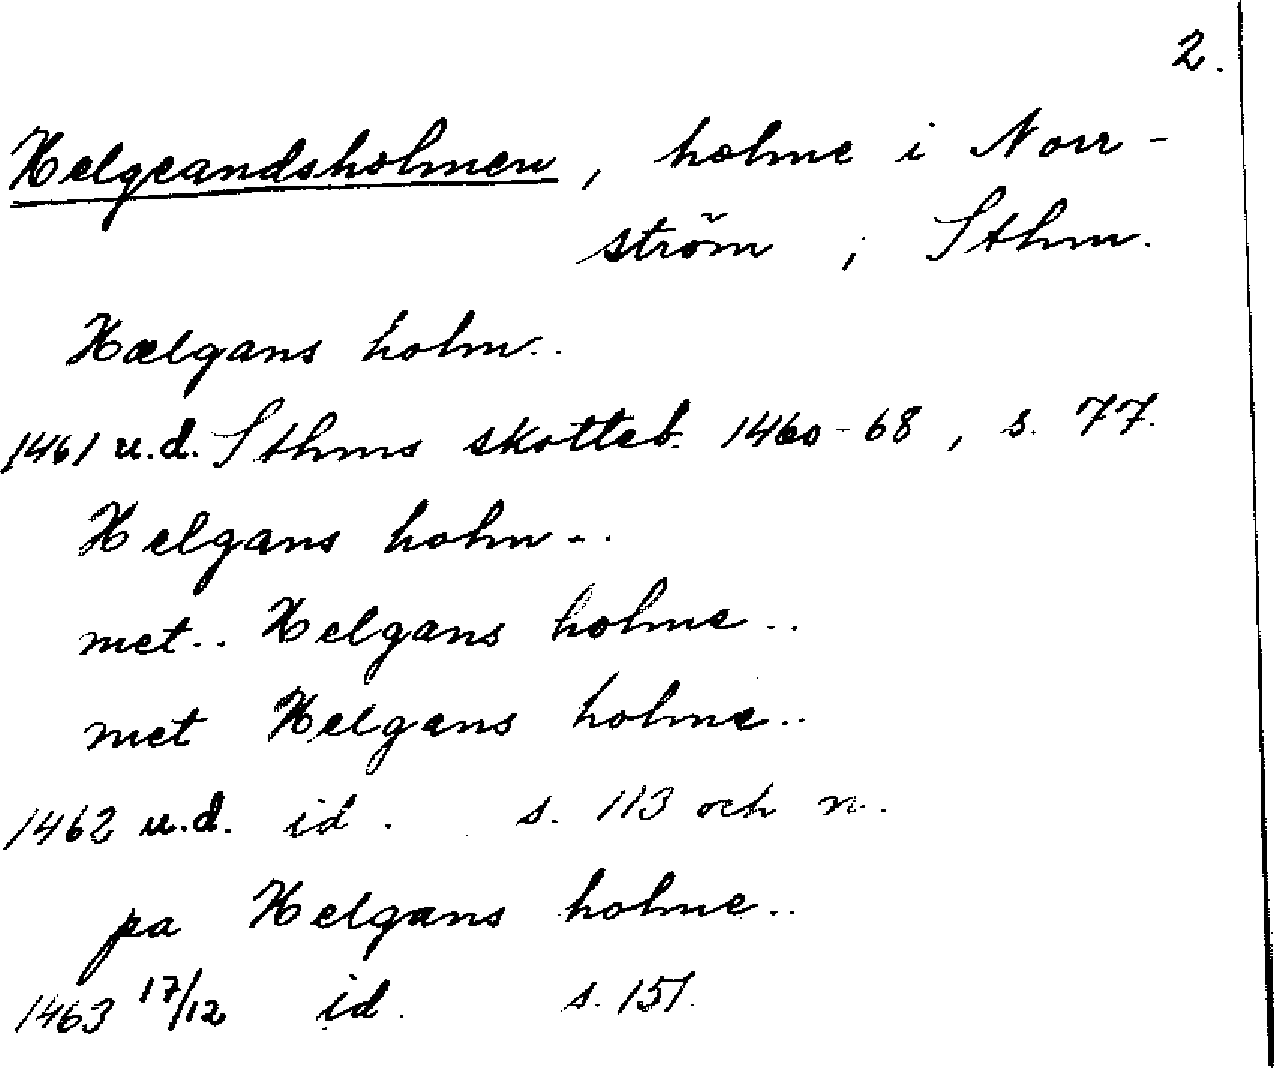 2.
Helgeandsholmen, holme i Norr-
ström, Sthm.
Hælgans holm..
1461 u.d. Sthms skotteb. 1460-68, s. 77.
Helgans holm..
met.. Helgans holme..
met Helgans holme..
1462 u.d. id. s. 113 och n.
pa Helgans holme..
1463 17/12 id. s. 151.